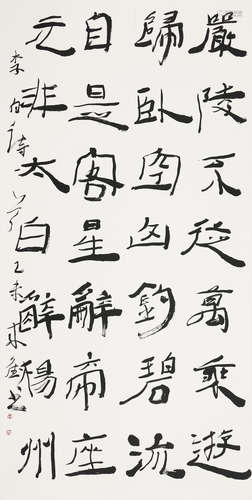 嚴陵不從萬乘遊
歸臥空山釣碧流
自是客星辭帝座
元非太白醉楊州
李白詩 乙未 書